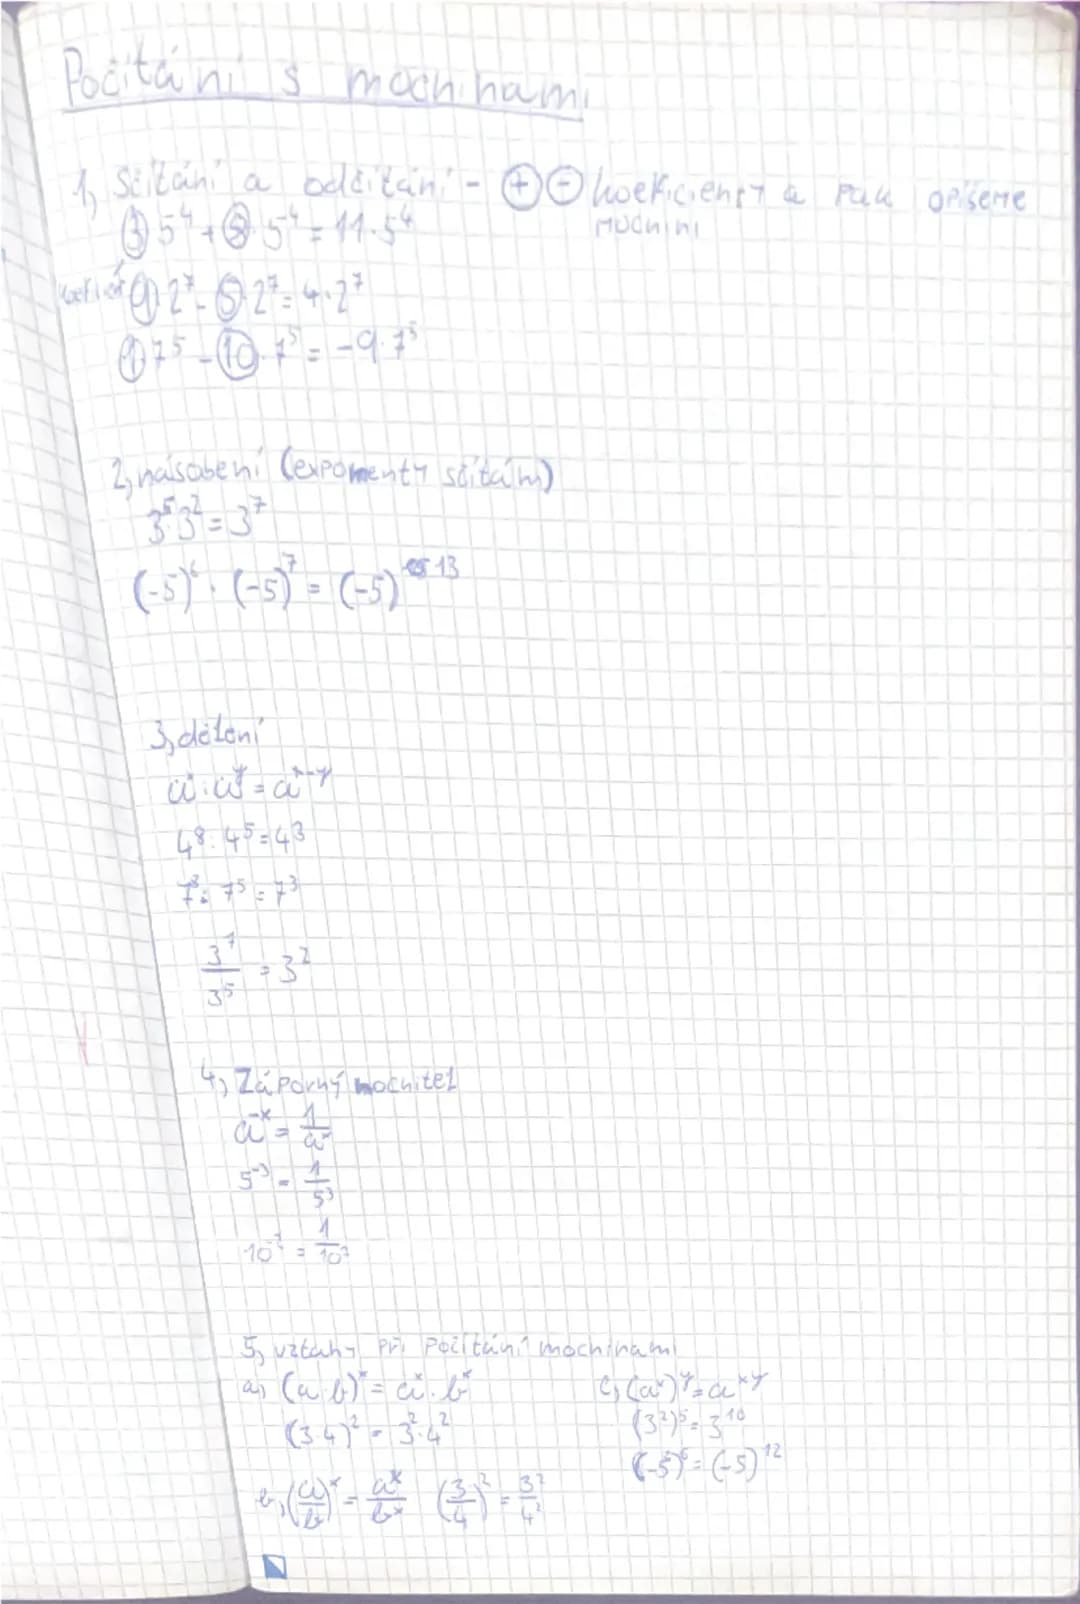 Počítání s mocninami
1, Sčítání a odčítání - ⊕⊖ koeficienty a pak opíšeme
mocnini
③5⁴ + ⑧·5⁴ = 11·5⁴
⑨2⁷ - ⑤·2⁷ = 4·2⁷
①75 - ⑩·7⁵ = -9·7⁵
2, násobení (exponenty sčítám)
3⁵·3² = 3⁷
(-5)⁶ · (-5)⁷ = (-5)¹³
3, dělení
aˣ : aʸ = aˣ⁻ʸ
4⁸ : 4⁵ = 4³
7⁸ : 7⁵ = 7³
3⁷/3⁵ = 3²
4, Záporný mocnitel
a⁻ˣ = 1/aˣ
5⁻³ = 1/5³
10⁻⁷ = 1/10⁷
5, vztahy při počítání mocninami
a, (a·b)ˣ = aˣ·bˣ c, (aˣ)ʸ = aˣʸ
(3·4)² = 3²·4² (3²)⁵ = 3¹⁰
(-5²)⁶ = (-5)¹²
b, (a/b)ˣ = aˣ/bˣ (3/4)² = 3²/4²